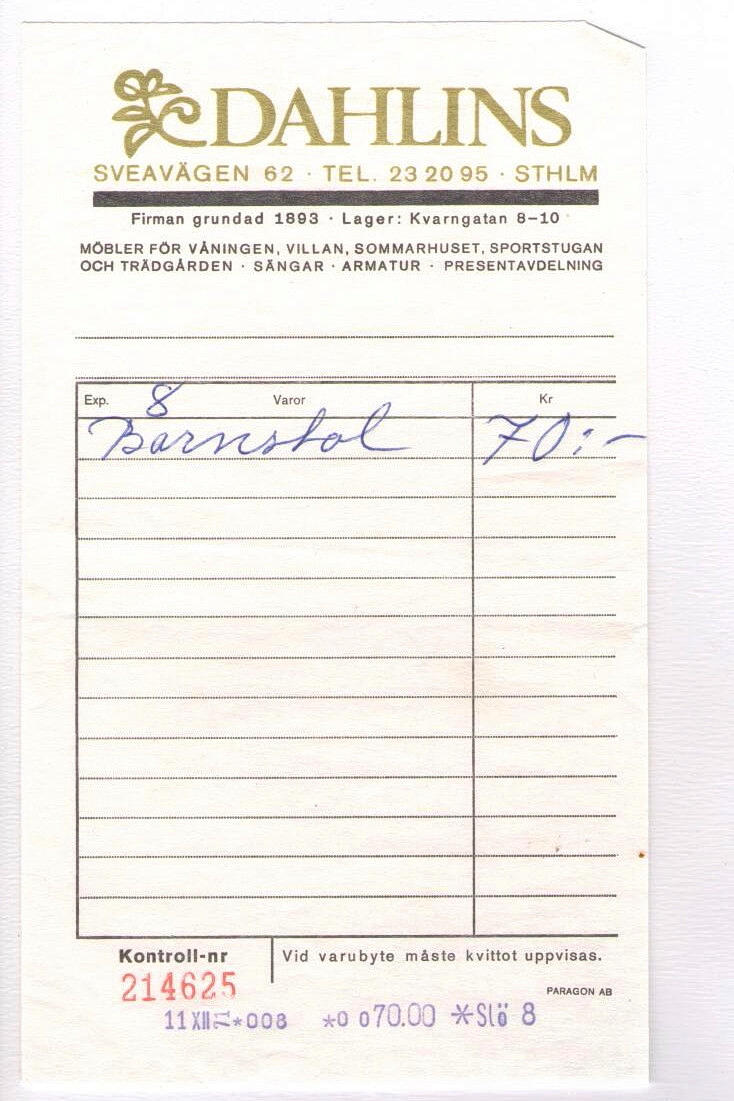 DAHLINS
SVEAVÄGEN 62 · TEL. 23 20 95 · STHLM
Firman grundad 1893 · Lager: Kvarngatan 8–10
MÖBLER FÖR VÅNINGEN, VILLAN, SOMMARHUSET, SPORTSTUGAN
OCH TRÄDGÅRDEN · SÄNGAR · ARMATUR · PRESENTAVDELNING
Exp. 8 Varor Kr
Barnstol 70:–
Kontroll-nr Vid varubyte måste kvittot uppvisas.
214625
PARAGON AB
11 XII *008 *0 070.00 *Slö 8